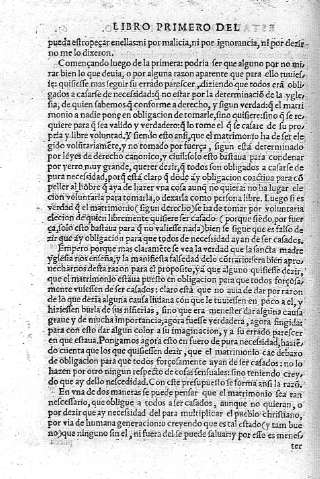 LIBRO PRIMERO DEL
pueda estropeçar en ellas: ni por malicia, ni por ignorancia, ni por dezir
no me lo dixeron.
Començando luego de la primera: podria ser que alguno por no mi
rar bien lo que deuia, o por alguna razon aparente para ello tuuies
se: quisiesse mas seguir su errado parescer, diziendo que todos erã obli
gados a casarse de necessidad: no estar por la determinació de la ygle
sia, de quien sabemos q̃ conforme a derecho, y segun verdad: q̃ el matri
monio a nadie pone en obligacion de tomarle, sino quisiere: sino q̃ se re
quiere para q̃ sea valido y verdadero: q̃ lo tome el q̃ se casare de su pro
pria y libre voluntad. Y siendo esto ansi, que el matrimonio ha de ser ele
gido volũtariamẽte, y no tomado por fuerça, segun està determinado
por leyes de derecho canonico, y ciuil: solo esto bastaua para condenar
por yerro muy grande, querer dezir, q̃ todos son obligados a casarse de
necessidad, porq̃ està claro q̃ dõde ay obligacion coactiua para cõ
peller al hõbre q̃ aya de hazer vna cosa aunq̃ no quiera: no ha lugar ele
cion voluntaria para tomarla, o dexarla como persona libre. Luego si es
verdad q̃ el matrimonio (segun derecho) se ha de tomar por voluntaria
elecion de quien libremente quisiere ser casado (porque siẽdo por fuer
ça, solo esto bastaua para q̃ no valiesse nada) bien se sigue que es falso de
zir que ay obligacion para que todos de necessidad ayan de ser casados.
Empero porque mas claramẽte se vea la verdad que la sancta madre
yglesia nos enseña, y la manifiesta falsedad delo cõtrario: sera bien apro
uecharnos desta razon para el proposito, ya que alguno quisiesse dezir,
que el matrimonio estaua puesto en obligacion para que todos forçosa-
mente vuiessen de ser casados: claro està que no auia de dar por razon
de lo que dezia alguna causa liuiana cõn que le tuuiessen en poco a el, y
hiziessen burla de sus niñerias, sino que era menester dar alguna causa
graue y de mucha importancia, agora fuesse verdadera, agora fingida:
para con esto dar algun color a su imaginacion, y a su perdicion
en que estaua. Pongamos agora esto en fuero de pura necessidad, haziẽ
do cuenta que los que quisiessen dezir, que el matrimonio cae debaxo
de obligacion para que todos forçosamente ayan de ser casados: no lo
hazen por otro ningun respecto de cosas sensuales: sino teniendo crey
do que ay dello nescedidad. Con este presupuesto se forma ansi la razõ.
En vna de dos maneras se puede pensar que el matrimonio sea tan
nescessario, que obligue a todos a ser casados, aunque no quieran, o
por dezir que ay necessidad del para multiplicar el pueblo christiano,
por via de humana generacion: o creyendo que es tal estado (y tam bue
no) que ninguno sin el, ni fuera del se puede saluar: y por esse es menes
ter